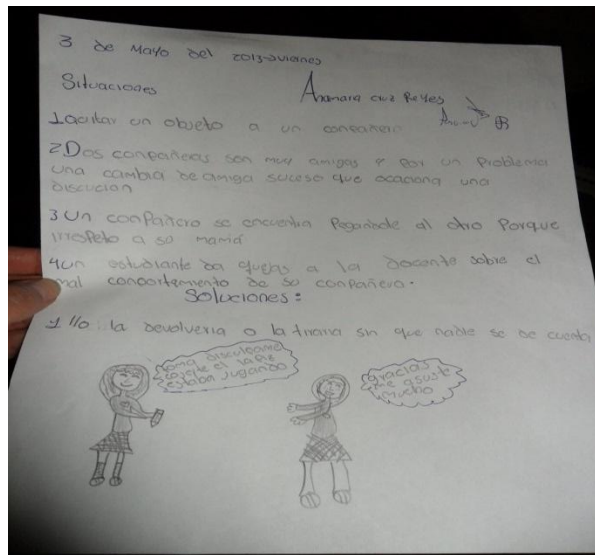 3 de Mayo del 2013-viernes
Situaciones
Anamaria cruz Reyes
1 quitar un objeto a un conpañero
2 Dos conpañeras son muy amigas y por un problema
una cambia de amiga suceso que ocaciona una
discucion
3 Un conpañero se encuentra Pegandole al otro Porque
irrespeto a su mamá
4 un estudiante da quejas a la docente sobre el
mal comportamiento de su conpañero.
Soluciones:
1 Yo: la devolveria o la tiraria sin que nadie se de cuenta
toma disculpame
cojete el lapiz
estaba jugando
gracias
me asuste
mucho